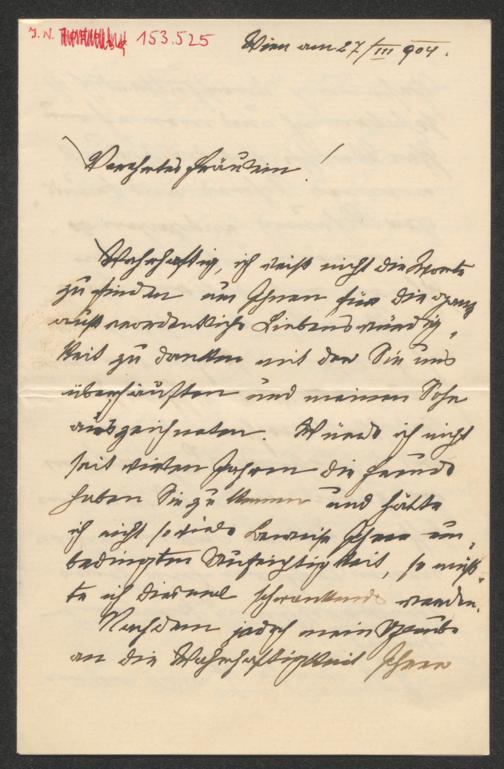 J. N. 153.525
Wien am 27/III 904.
Verehrtes Fräulein!
Wahrhaftig, ich weiß nicht die Worte
zu finden um Ihnen für die ganz
außerordentliche Liebenswürdig-
keit zu danken mit der Sie uns
überhäuften und meinen Sohn
auszeichneten. Würde ich nicht
seit vielen Jahren die Freude
haben Sie zu kennen und hätte
ich nicht soviele Beweise Ihrer un-
bedingten Aufrichtigkeit, so müß-
te ich diesmal schwankend werden.
Nachdem jedoch mein Glaube
an die Wahrhaftigkeit Ihrer